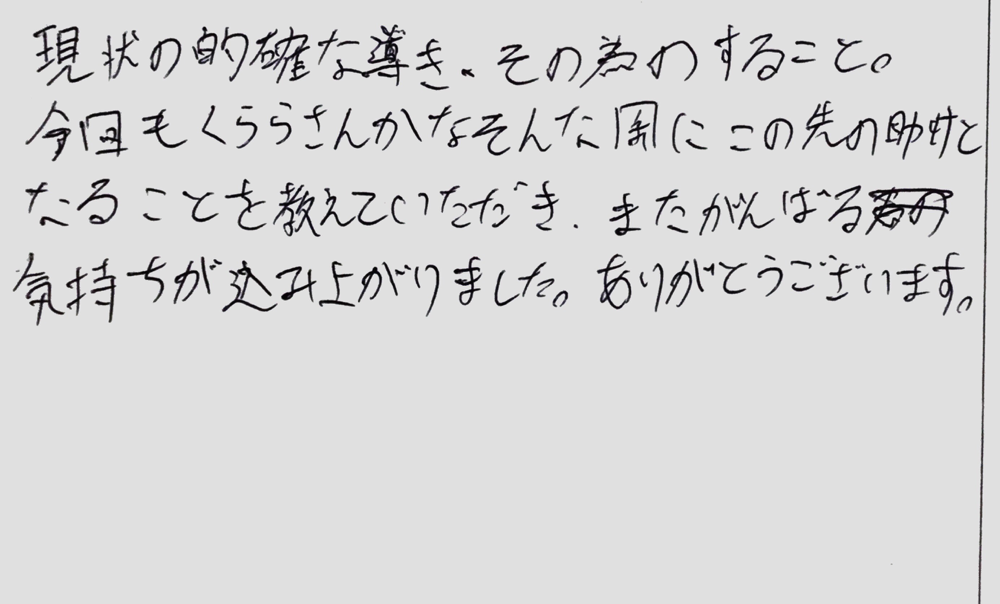 現状の的確な導き、その為のすること。
今回もくららさんかなそんな風にこの先の助けと
なることを教えていただき、またがんばる
気持ちが込み上がりました。ありがとうございます。